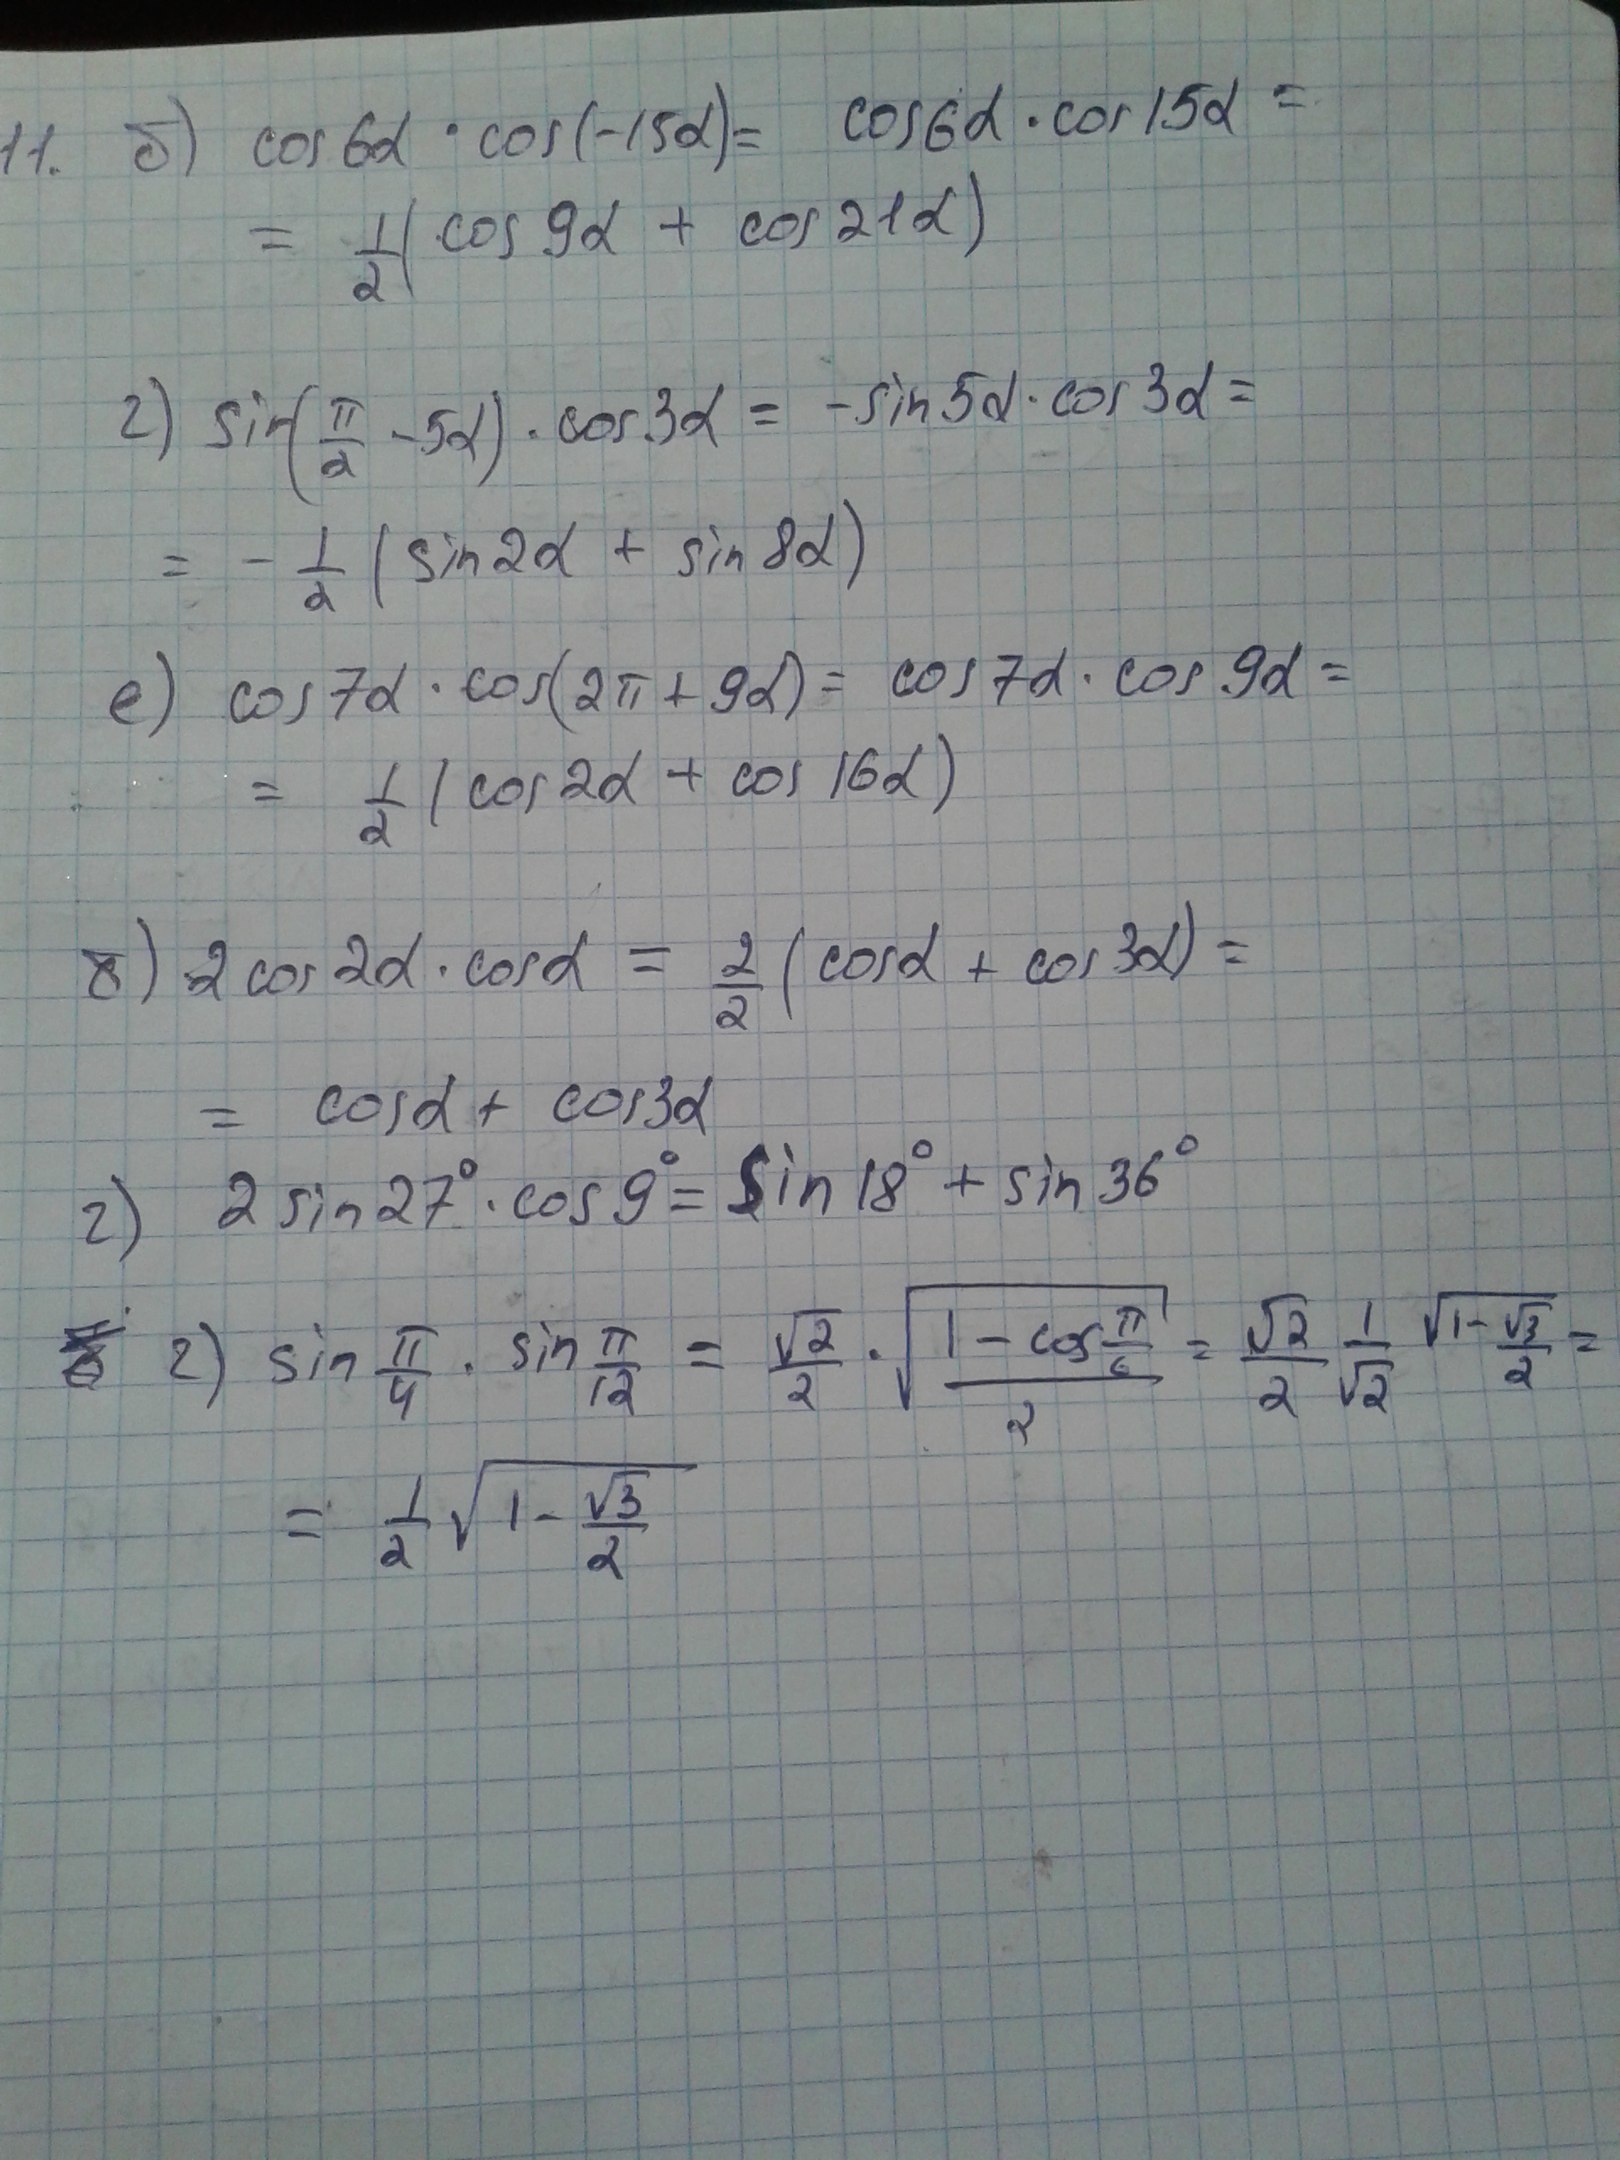 11. б) cos 6α · cos(-15α) = cos 6α · cos 15α =
= 1/2 (cos 9α + cos 21α)
г) sin(π/2 - 5α) · cos 3α = -sin 5α · cos 3α =
= -1/2 (sin 2α + sin 8α)
е) cos 7α · cos(2π + 9α) = cos 7α · cos 9α =
= 1/2 (cos 2α + cos 16α)
в) 2 cos 2α · cos α = 2/2 (cos α + cos 3α) =
= cos α + cos 3α
г) 2 sin 27° · cos 9° = sin 18° + sin 36°
г) sin π/4 · sin π/12 = √2/2 · √((1 - cos π/6)/2) = √2/2 1/√2 √(1 - √3/2) =
= 1/2 √(1 - √3/2)